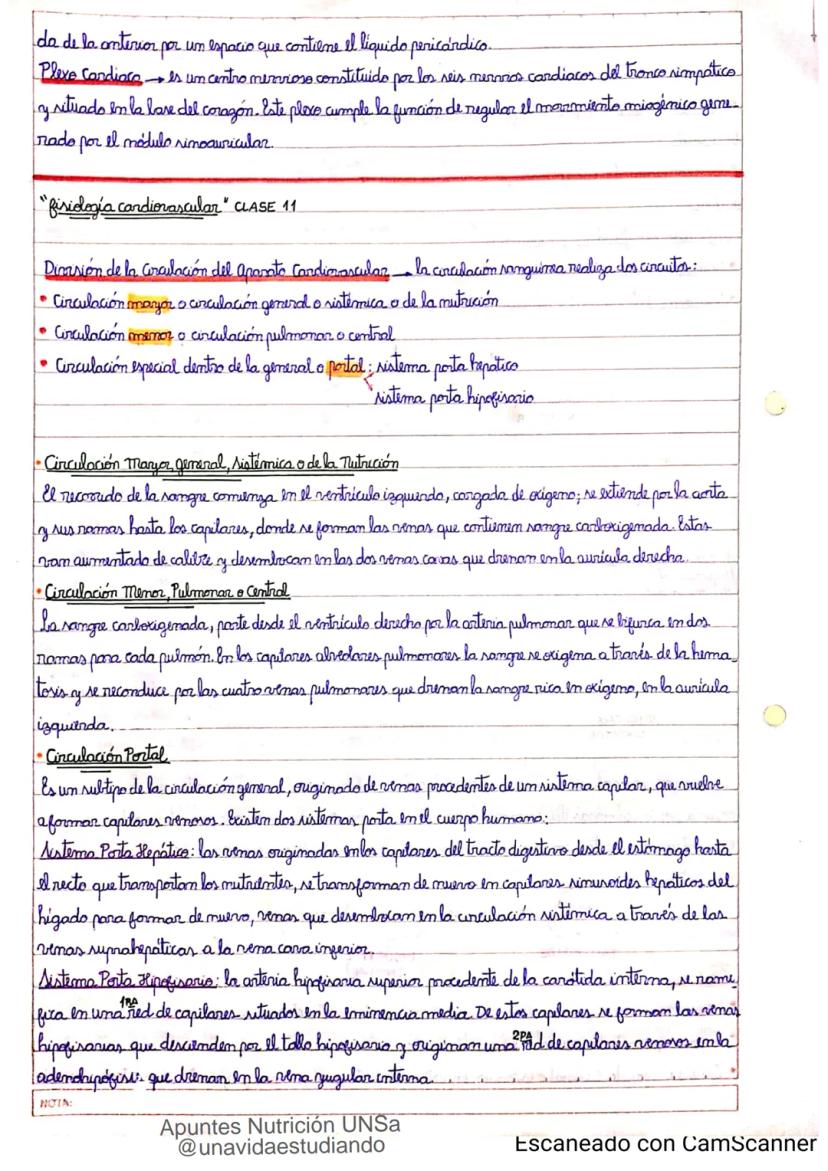 da de la anterior por un espacio que contiene el líquido pericárdico.
Plexo Cardíaco → es un centro nervioso constituido por los seis nervios cardiacos del tronco simpático
y situado en la base del corazón. Este plexo cumple la función de regular el movimiento miogénico gene-
rado por el nódulo sinoauricular.
"fisiología cardiovascular" CLASE 11
División de la Circulación del Aparato Cardiovascular → la circulación sanguínea realiza dos circuitos:
• Circulación mayor o circulación general o sistémica o de la nutrición
• Circulación menor o circulación pulmonar o central
• Circulación especial dentro de la general o portal: sistema porta hepático
sistema porta hipofisario
• Circulación Mayor, general, sistémica o de la Nutrición
El recorrido de la sangre comienza en el ventrículo izquierdo, cargada de oxígeno; se extiende por la aorta
y sus ramas hasta los capilares, donde se forman las venas que contienen sangre carboxigenada. Estas
van aumentado de calibre y desembocan en las dos venas cavas que drenan en la aurícula derecha.
• Circulación Menor, Pulmonar o Central
La sangre carboxigenada, parte desde el ventrículo derecho por la arteria pulmonar que se bifurca en dos
ramas para cada pulmón. En los capilares alveolares pulmonares la sangre se oxigena a través de la hema_
tosis y se reconduce por las cuatro venas pulmonares que drenan la sangre rica en oxígeno, en la aurícula
izquierda.
• Circulación Portal
Es un subtipo de la circulación general, originado de venas procedentes de un sistema capilar, que vuelve
a formar capilares venosos. Existen dos sistemas porta en el cuerpo humano:
Sistema Porta Hepático: las venas originadas en los capilares del tracto digestivo desde el estómago hasta
el recto que transportan los nutrientes, se transforman de nuevo en capilares sinusoides hepáticos del
hígado para formar de nuevo, venas que desembocan en la circulación sistémica a través de las
venas suprahepáticas a la vena cava inferior.
Sistema Porta Hipofisario: la arteria hipofisaria superior procedente de la carótida interna, se rami_
fica en una 1RA red de capilares situados en la eminencia media. De estos capilares se forman las venas
hipofisarias que descienden por el tallo hipofisario y originan una 2DA red de capilares venosos en la
adenohipófisis que drenan en la vena yugular interna.
NOTA:
Apuntes Nutrición UNSa
@unavidaestudiando
Escaneado con CamScanner